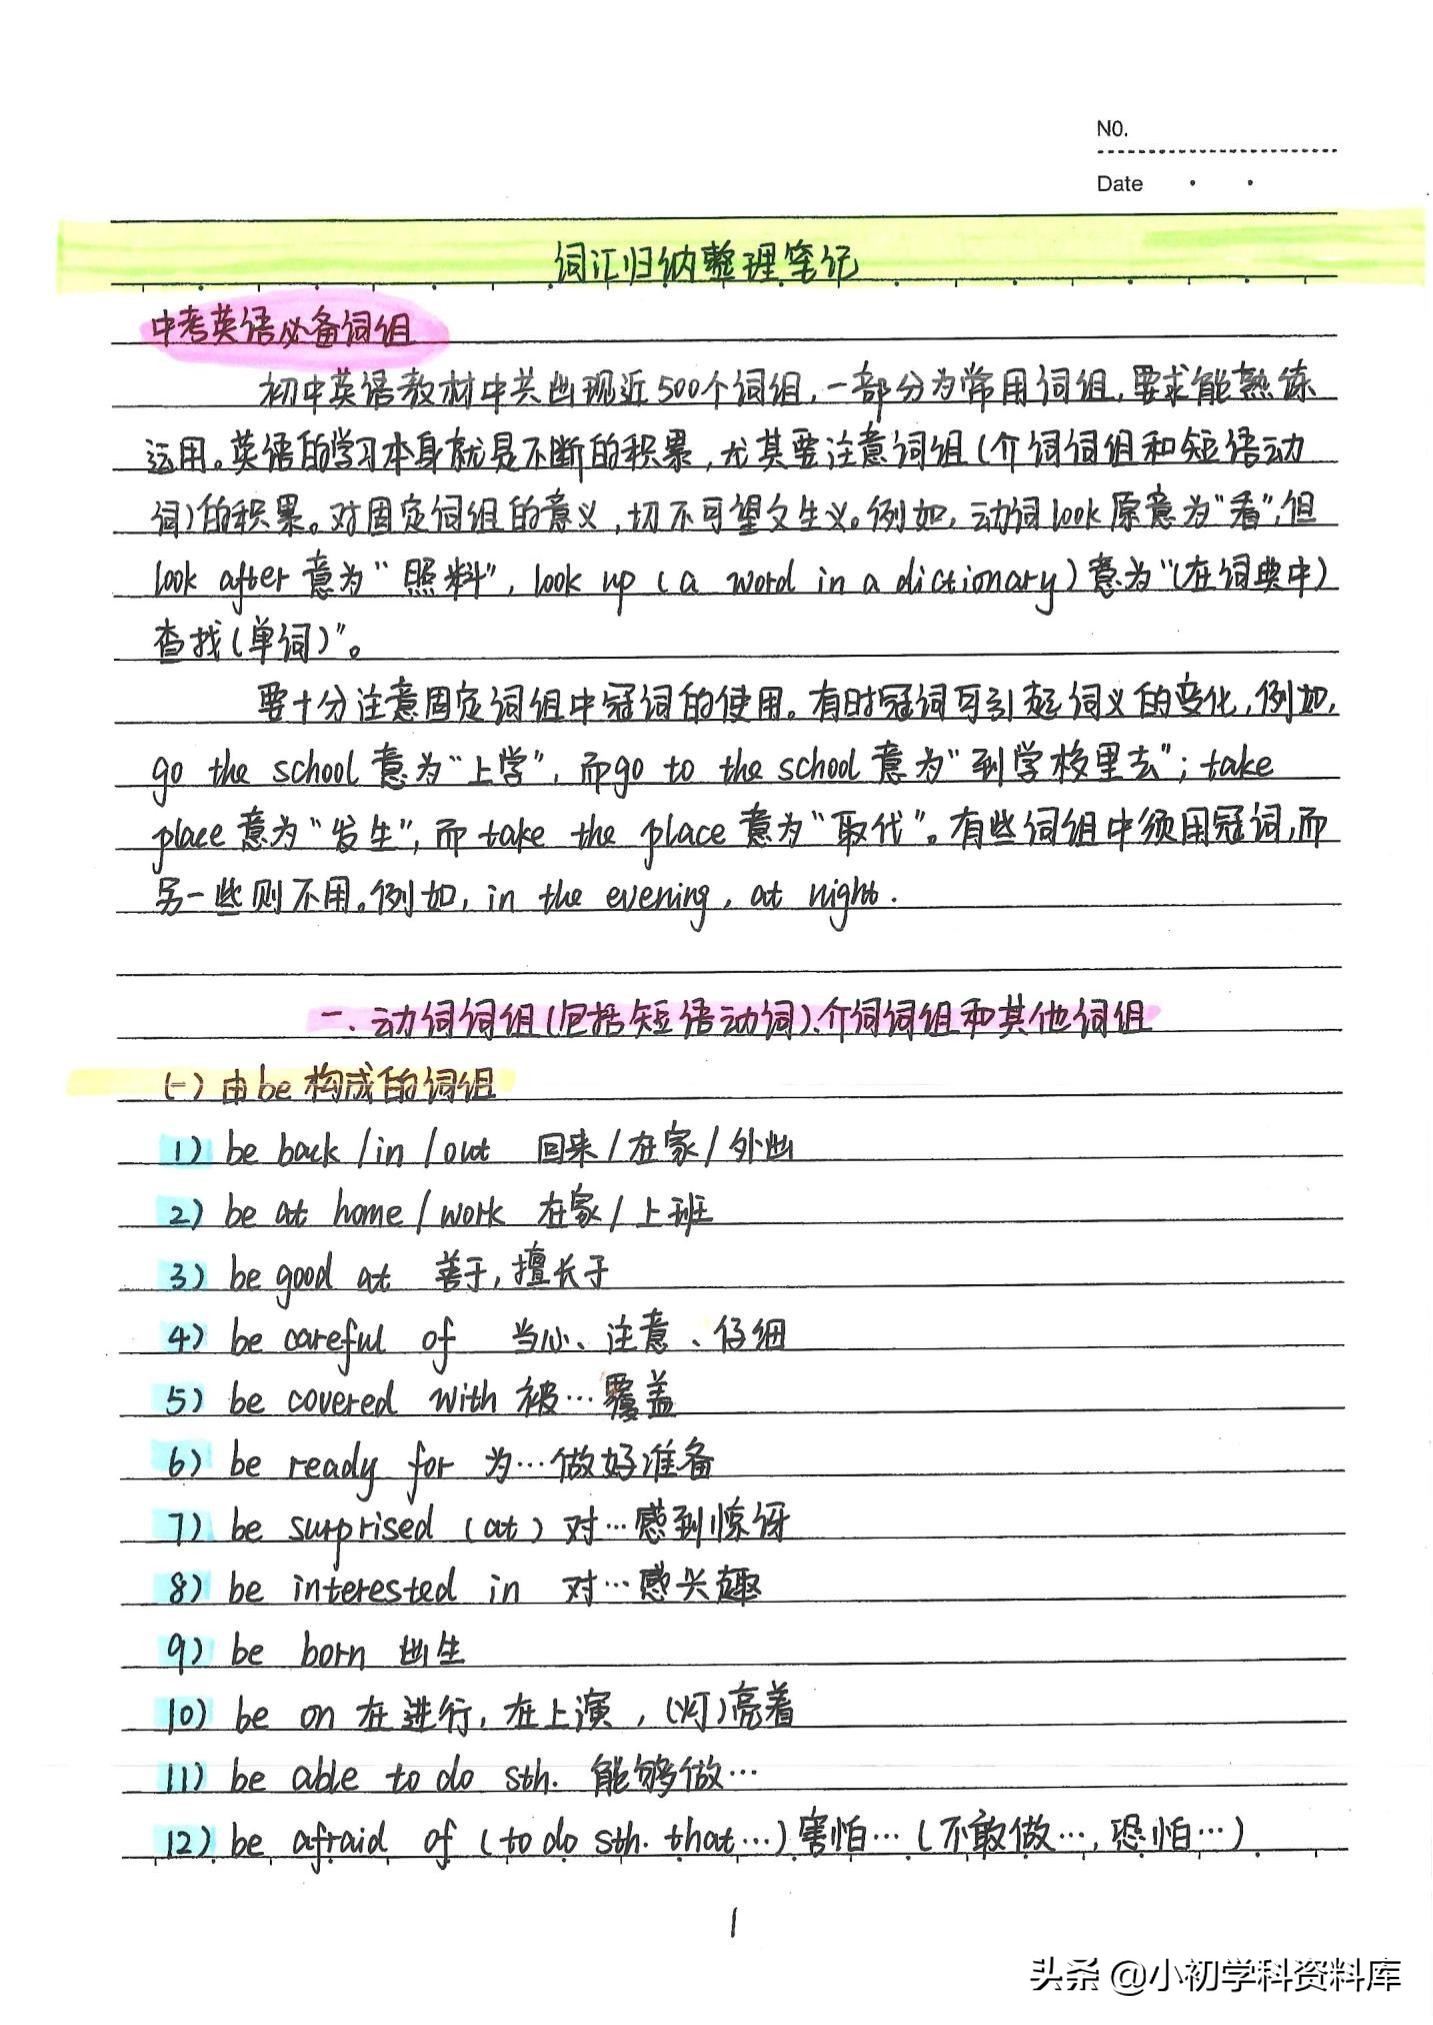 NO.
Date
词汇归纳整理笔记
中考英语必备词组
初中英语教材中共出现近500个词组,一部分为常用词组,要求能熟练
运用。英语的学习本身就是不断的积累,尤其要注意词组(介词词组和短语动
词)的积累。对固定词组的意义,切不可望文生义。例如,动词look原意为“看”,但
look after意为“照料”,look up (a word in a dictionary)意为“(在词典中)
查找(单词)”。
要十分注意固定词组中冠词的使用。有时冠词可引起词义的变化,例如,
go the school意为“上学”,而go to the school意为“到学校里去”;take
place意为“发生”,而take the place意为“取代”。有些词组中须用冠词,而
另一些则不用。例如,in the evening, at night.
一、动词词组(包括短语动词)、介词词组和其他词组
(一)由be构成的词组
1) be back /in /out 回来/在家/外出
2) be at home /work 在家/上班
3) be good at 善于,擅长于
4) be careful of 当心、注意、仔细
5) be covered with 被…覆盖
6) be ready for 为…做好准备
7) be surprised (at) 对…感到惊讶
8) be interested in 对…感兴趣
9) be born 出生
10) be on 在进行,在上演,(灯)亮着
11) be able to do sth. 能够做…
12) be afraid of (to do sth. that…)害怕…(不敢做…,恐怕…)
1
头条 @小初学科资料库